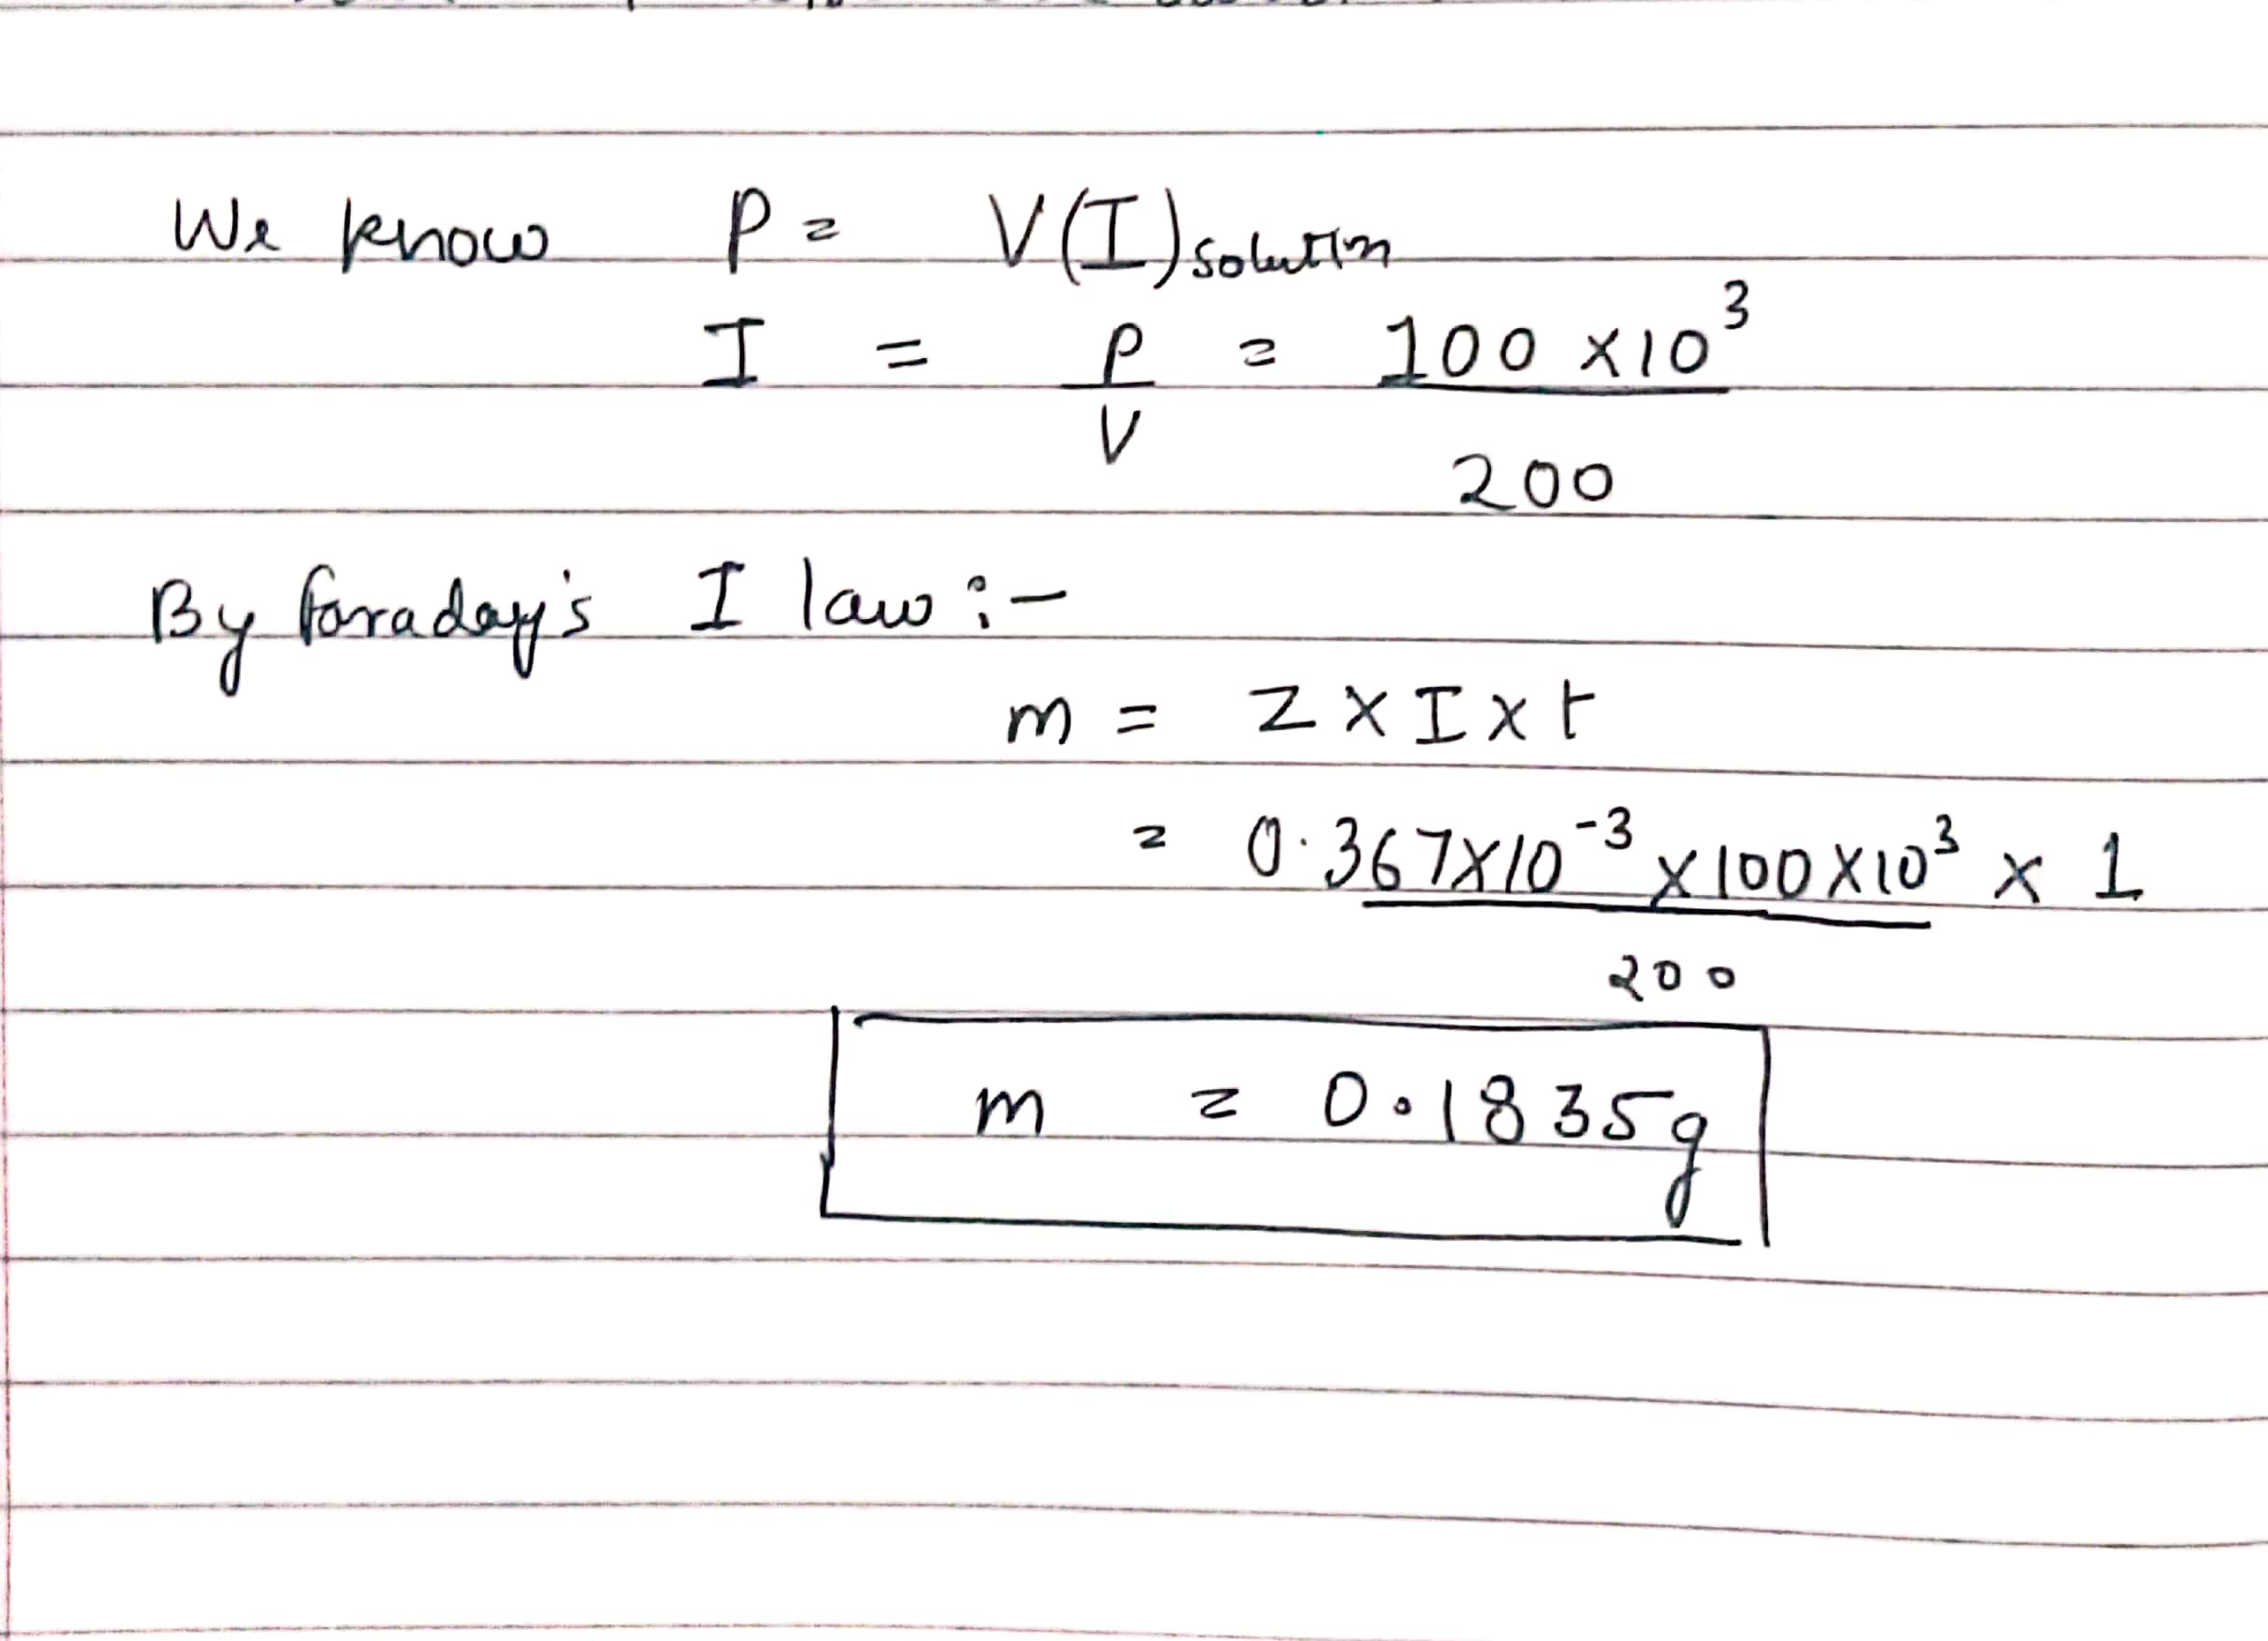 We know P = V(I)solution
I = P/V = 100 × 10³ / 200
By faraday's I law :-
m = Z × I × t
= 0.367×10⁻³ × 100 × 10³ × 1 / 200
m = 0.1835g